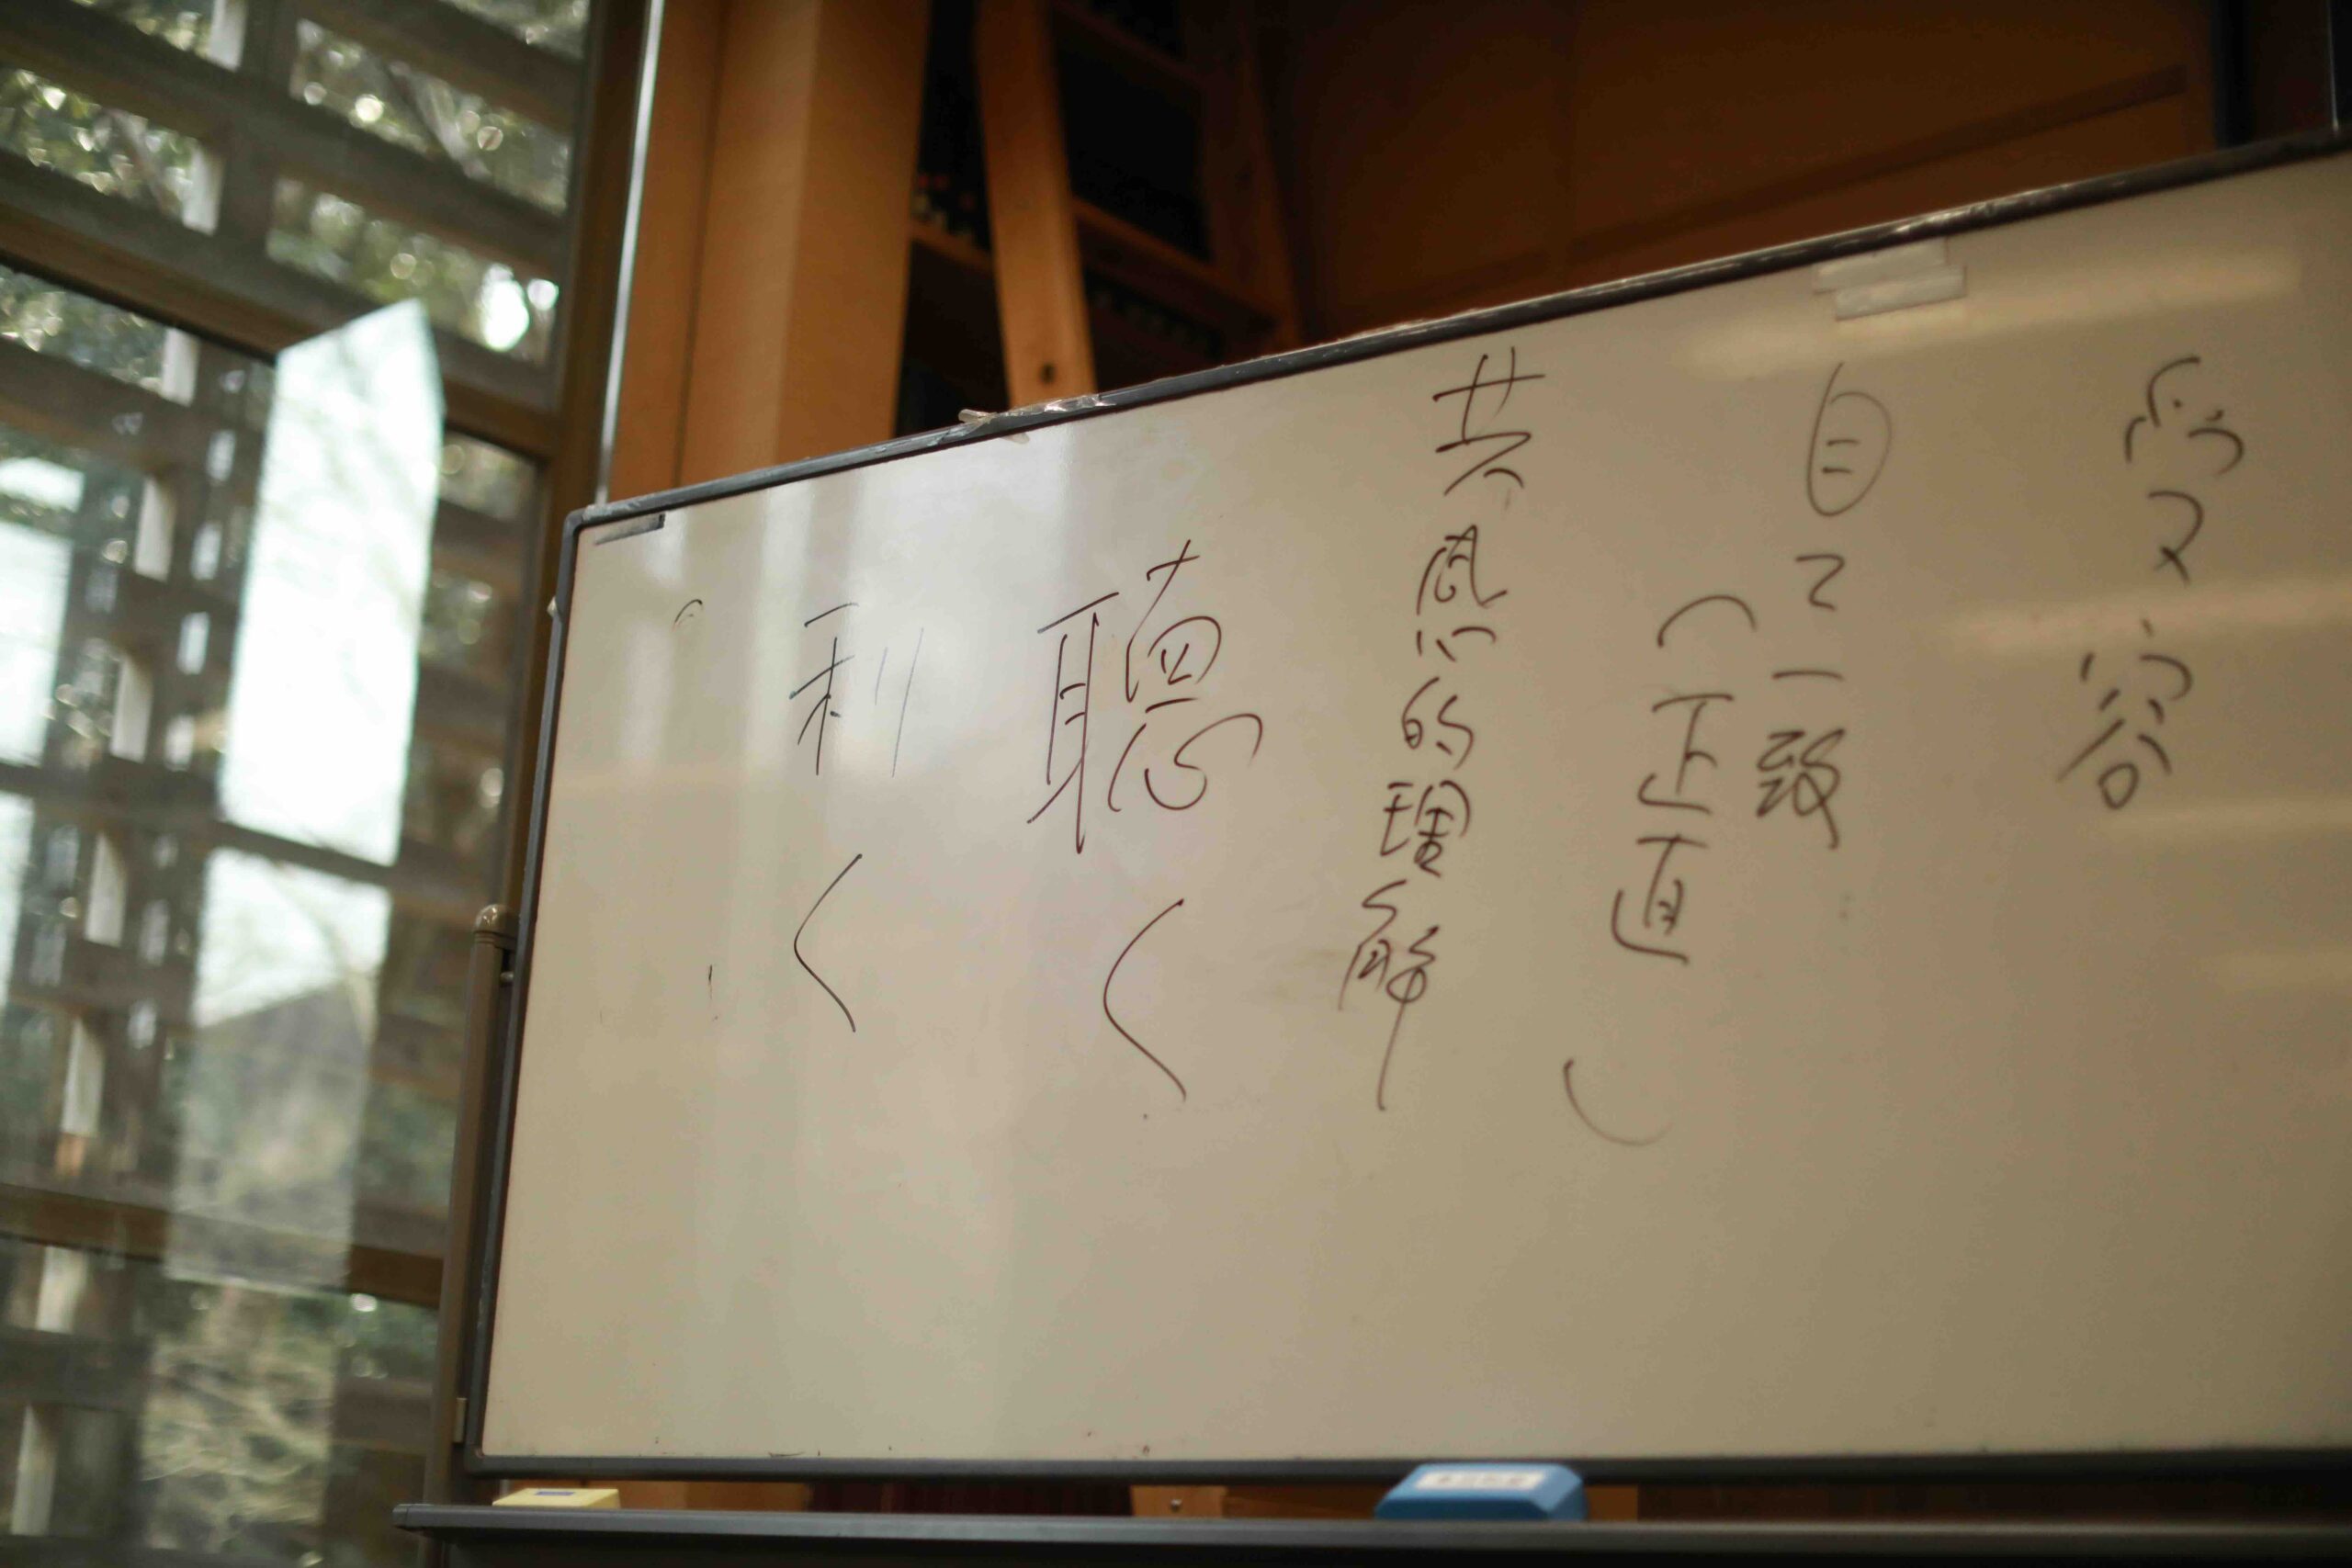 受容
自己一致
（正直）
共感的理解
聴く
利く